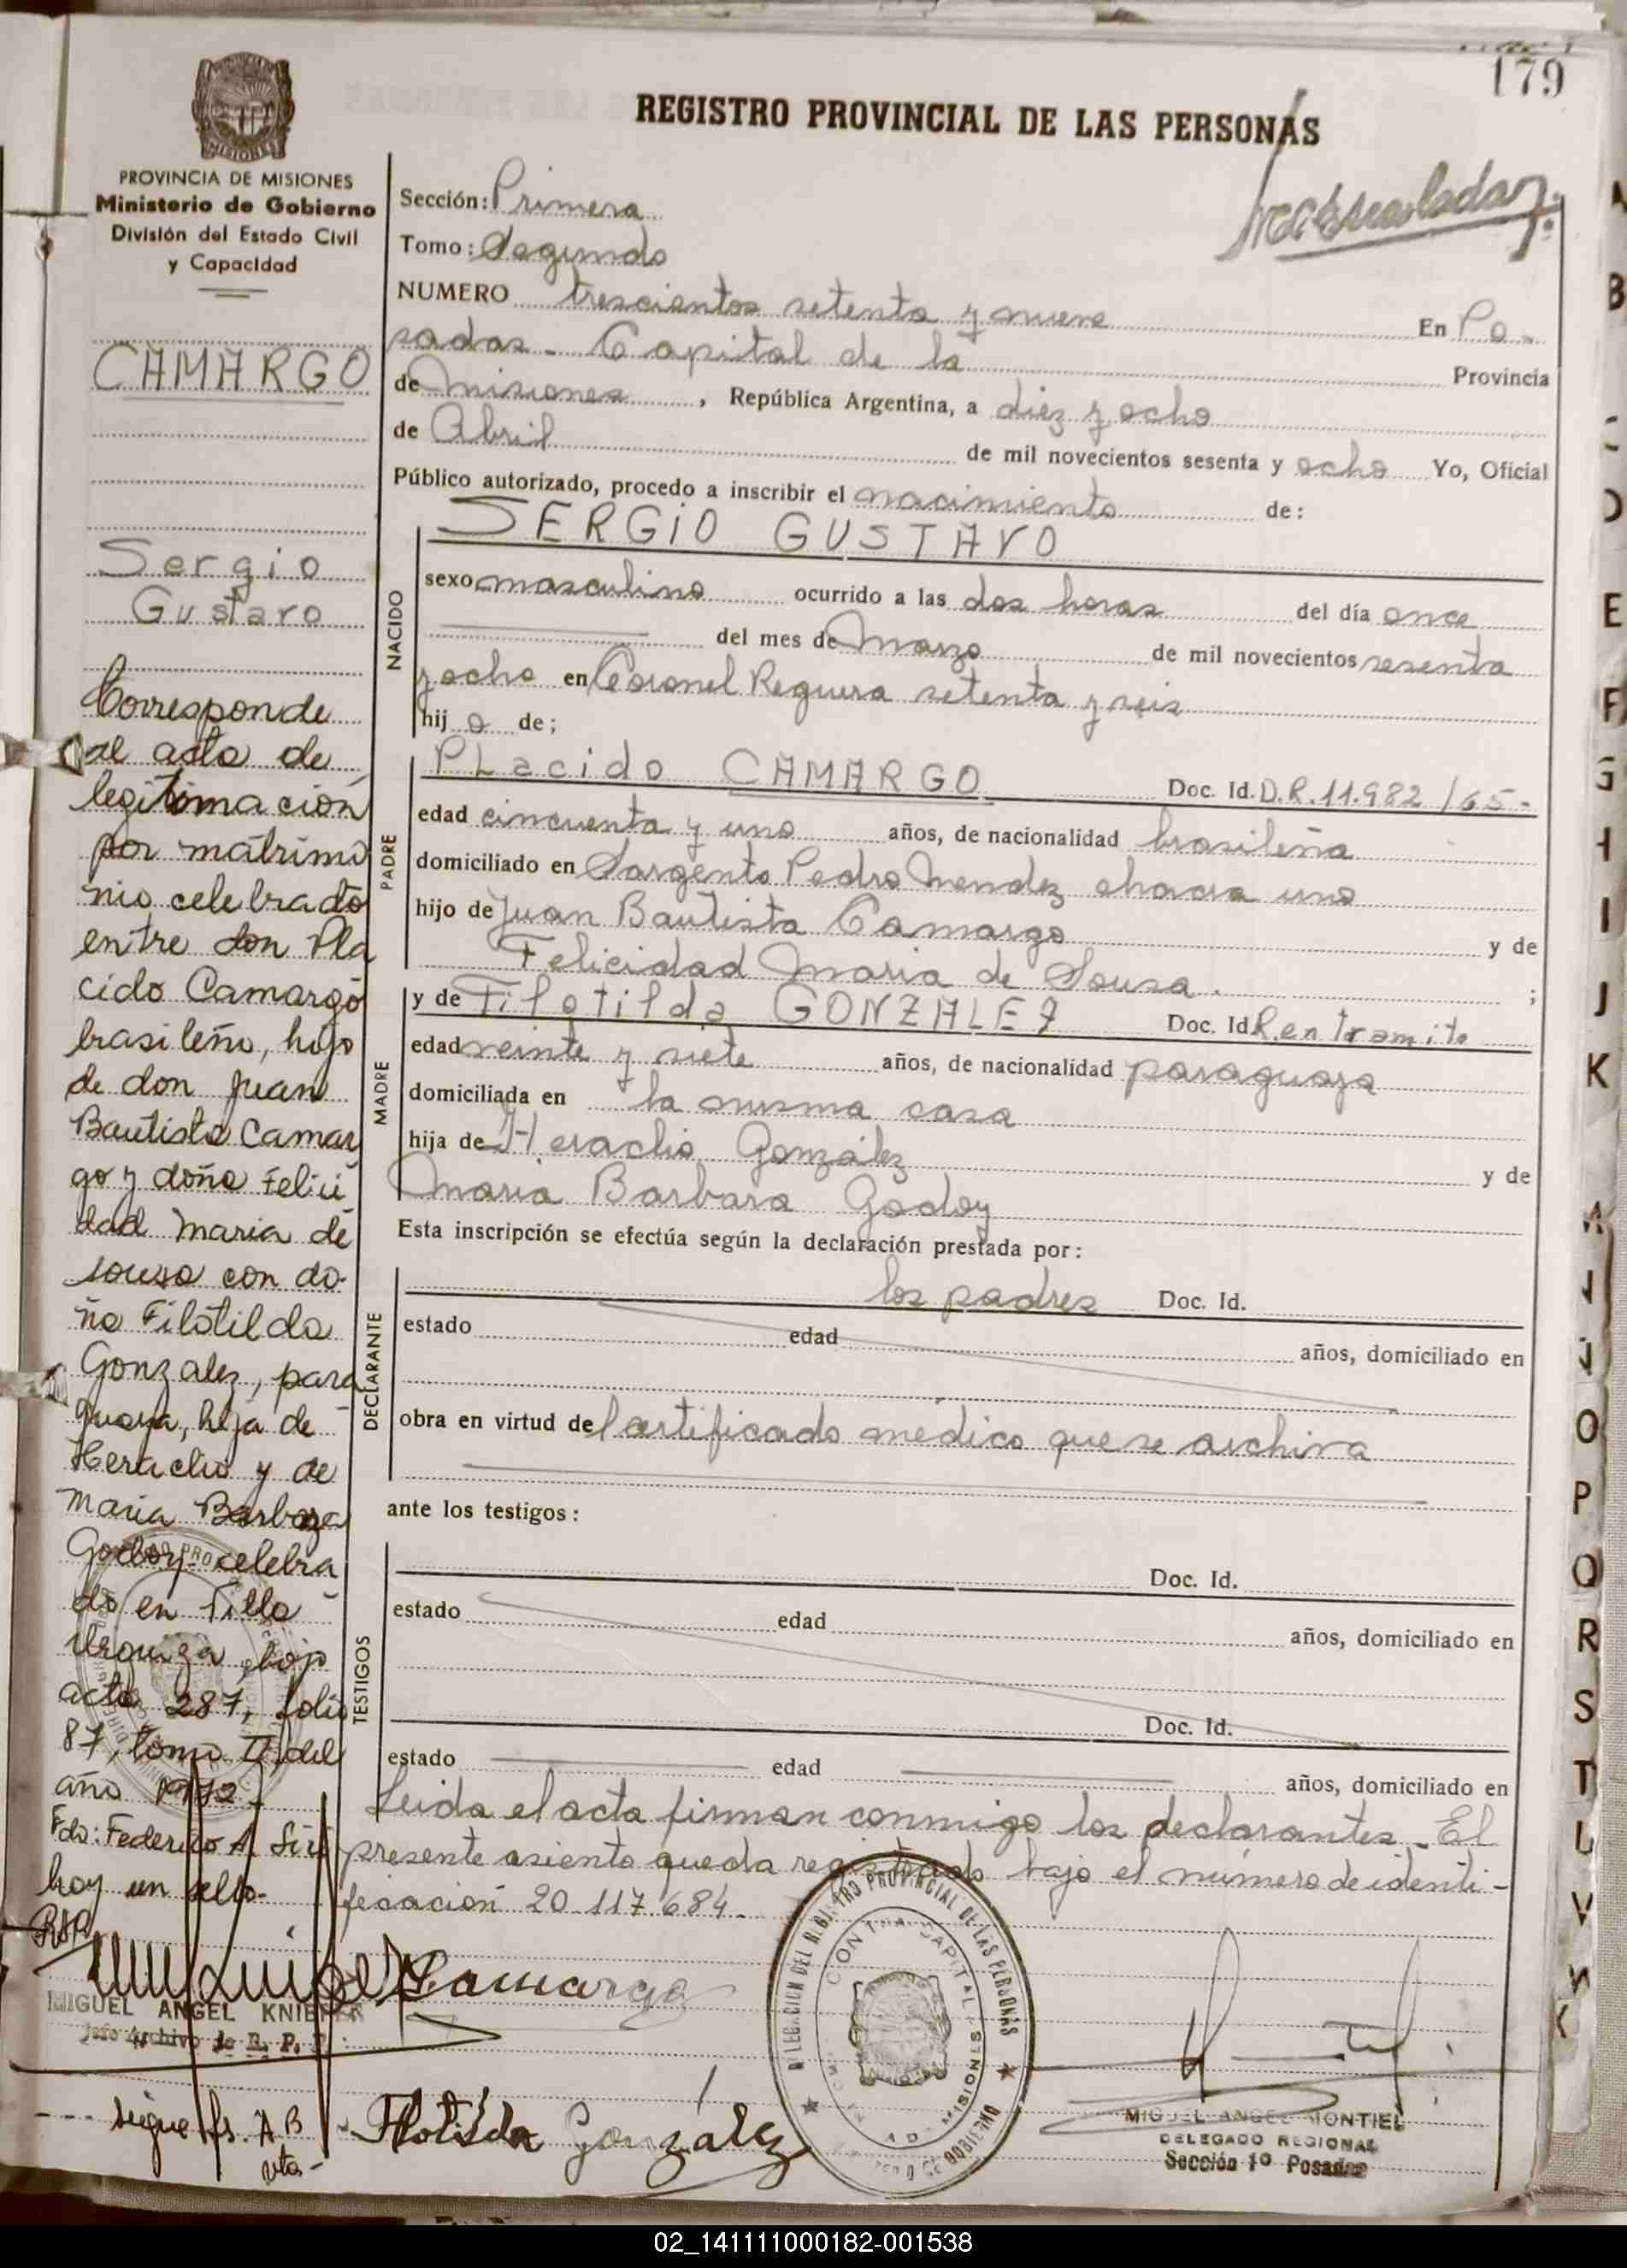 179
REGISTRO PROVINCIAL DE LAS PERSONAS
PROVINCIA DE MISIONES
Ministerio de Gobierno
División del Estado Civil
y Capacidad
Sección: Primera
Tomo: Segundo
NUMERO trescientos setenta y nueve En Po-
sadas - Capital de la Provincia
de Misiones, República Argentina, a diez y ocho
de Abril de mil novecientos sesenta y ocho Yo, Oficial
Público autorizado, procedo a inscribir el nacimiento de:
NACIDO
SERGIO GUSTAVO
sexo masculino ocurrido a las dos horas del día once
del mes de Marzo de mil novecientos sesenta
y ocho en Coronel Reguera setenta y seis
hij o de;
PADRE
PLacido CAMARGO Doc. Id. D.R. 11.982 /65-
edad cincuenta y uno años, de nacionalidad brasileña
domiciliado en Sargento Pedro Mendez chacra uno
hijo de Juan Bautista Camargo y de
Felicidad Maria de Sousa. ;
MADRE
y de Filotilda GONZALEZ Doc. Id R.en tramite
edad veinte y siete años, de nacionalidad paraguaya
domiciliada en la misma casa
hija de Heraclio González y de
Maria Barbara Godoy
Esta inscripción se efectúa según la declaración prestada por:
DECLARANTE
los padres Doc. Id.
estado edad años, domiciliado en
obra en virtud del certificado médico que se archiva
ante los testigos:
TESTIGOS
Doc. Id.
estado edad años, domiciliado en
Doc. Id.
estado edad años, domiciliado en
Leida el acta firman conmigo los declarantes - El
presente asiento queda registrado bajo el número de identi-
ficación 20.117.684.
CAMARGO
Sergio
Gustavo
Corresponde
al acta de
legitimación
por matrimo
nio celebrado
entre don Pla
cido Camargo
brasileño, hijo
de don Juan
Bautista Camar
go y doña Felici
dad Maria de
Sousa con do-
ña Filotilda
Gonzalez, para
guaya, hija de
Heraclio y de
Maria Barbara
Godoy celebra
do en Villa
Urquiza, bajo
acta 287, folio
87, tomo II del
año 1972.
Fdo: Federico A.
hay un sello-
Camargo
MIGUEL ANGEL
Jefe Archivo de R. P. P.
sigue
vta-
Filotilda González
DELEGACION DEL REGISTRO PROVINCIAL DE LAS PERSONAS
CAPITAL
MISIONES
MIGUEL ANGEL MONTIEL
DELEGADO REGIONAL
Sección 1º Posadas
B
D
E
F
G
H
I
J
K
O
P
Q
R
S
T
U
V
W
02_141111000182-001538